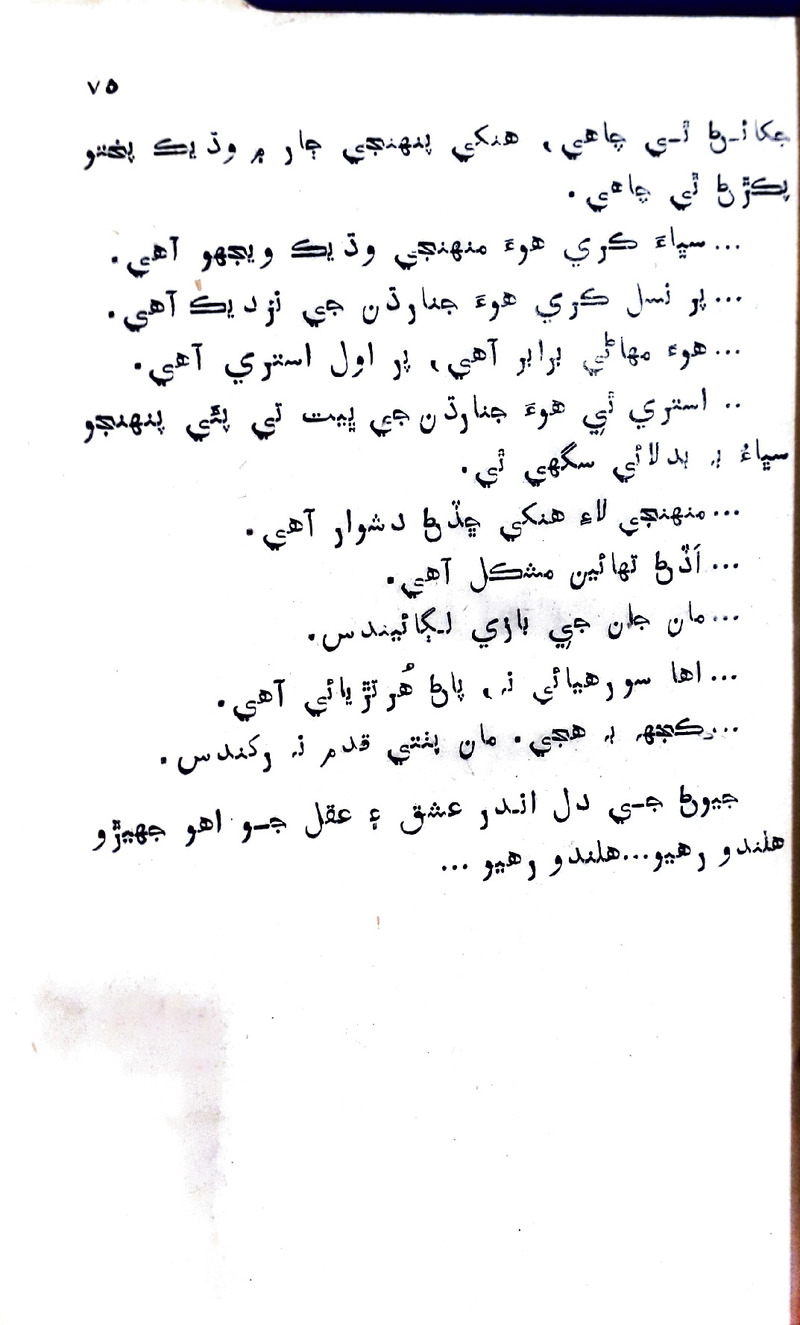 ٧٥
جکائڻ ٿي چاهي، هنکي پنهنجي ڄار ۾ وڌيڪ پختو
پڪڙڻ ٿي چاهي.
...سڀاءَ ڪري هوءَ منهنجي وڌيڪ ويجهو آهي.
...پر نسل ڪري هوءَ جنارڌن جي نزديڪ آهي.
...هوءَ مهاڻي برابر آهي، پر اول استري آهي.
.. استري ٿي هوءَ جنارڌن جي ڀيٽ تي پئي پنهنجو
سڀاءُ بہ بدلائي سگهي ٿي.
...منهنجي لاءِ هنکي ڇڏڻ دشوار آهي.
...اَڏڻ تهائين مشڪل آهي.
...مان جان جي بازي لڳائيندس.
...اها سورهيائي نہ، پاڻ هُرتڙيائي آهي.
...ڪجهہ بہ هجي. مان پنتي قدم نہ رکندس.
جيوڻ جي دل اندر عشق ۽ عقل جو اهو جهيڙو
هلندو رهيو...هلندو رهيو ...